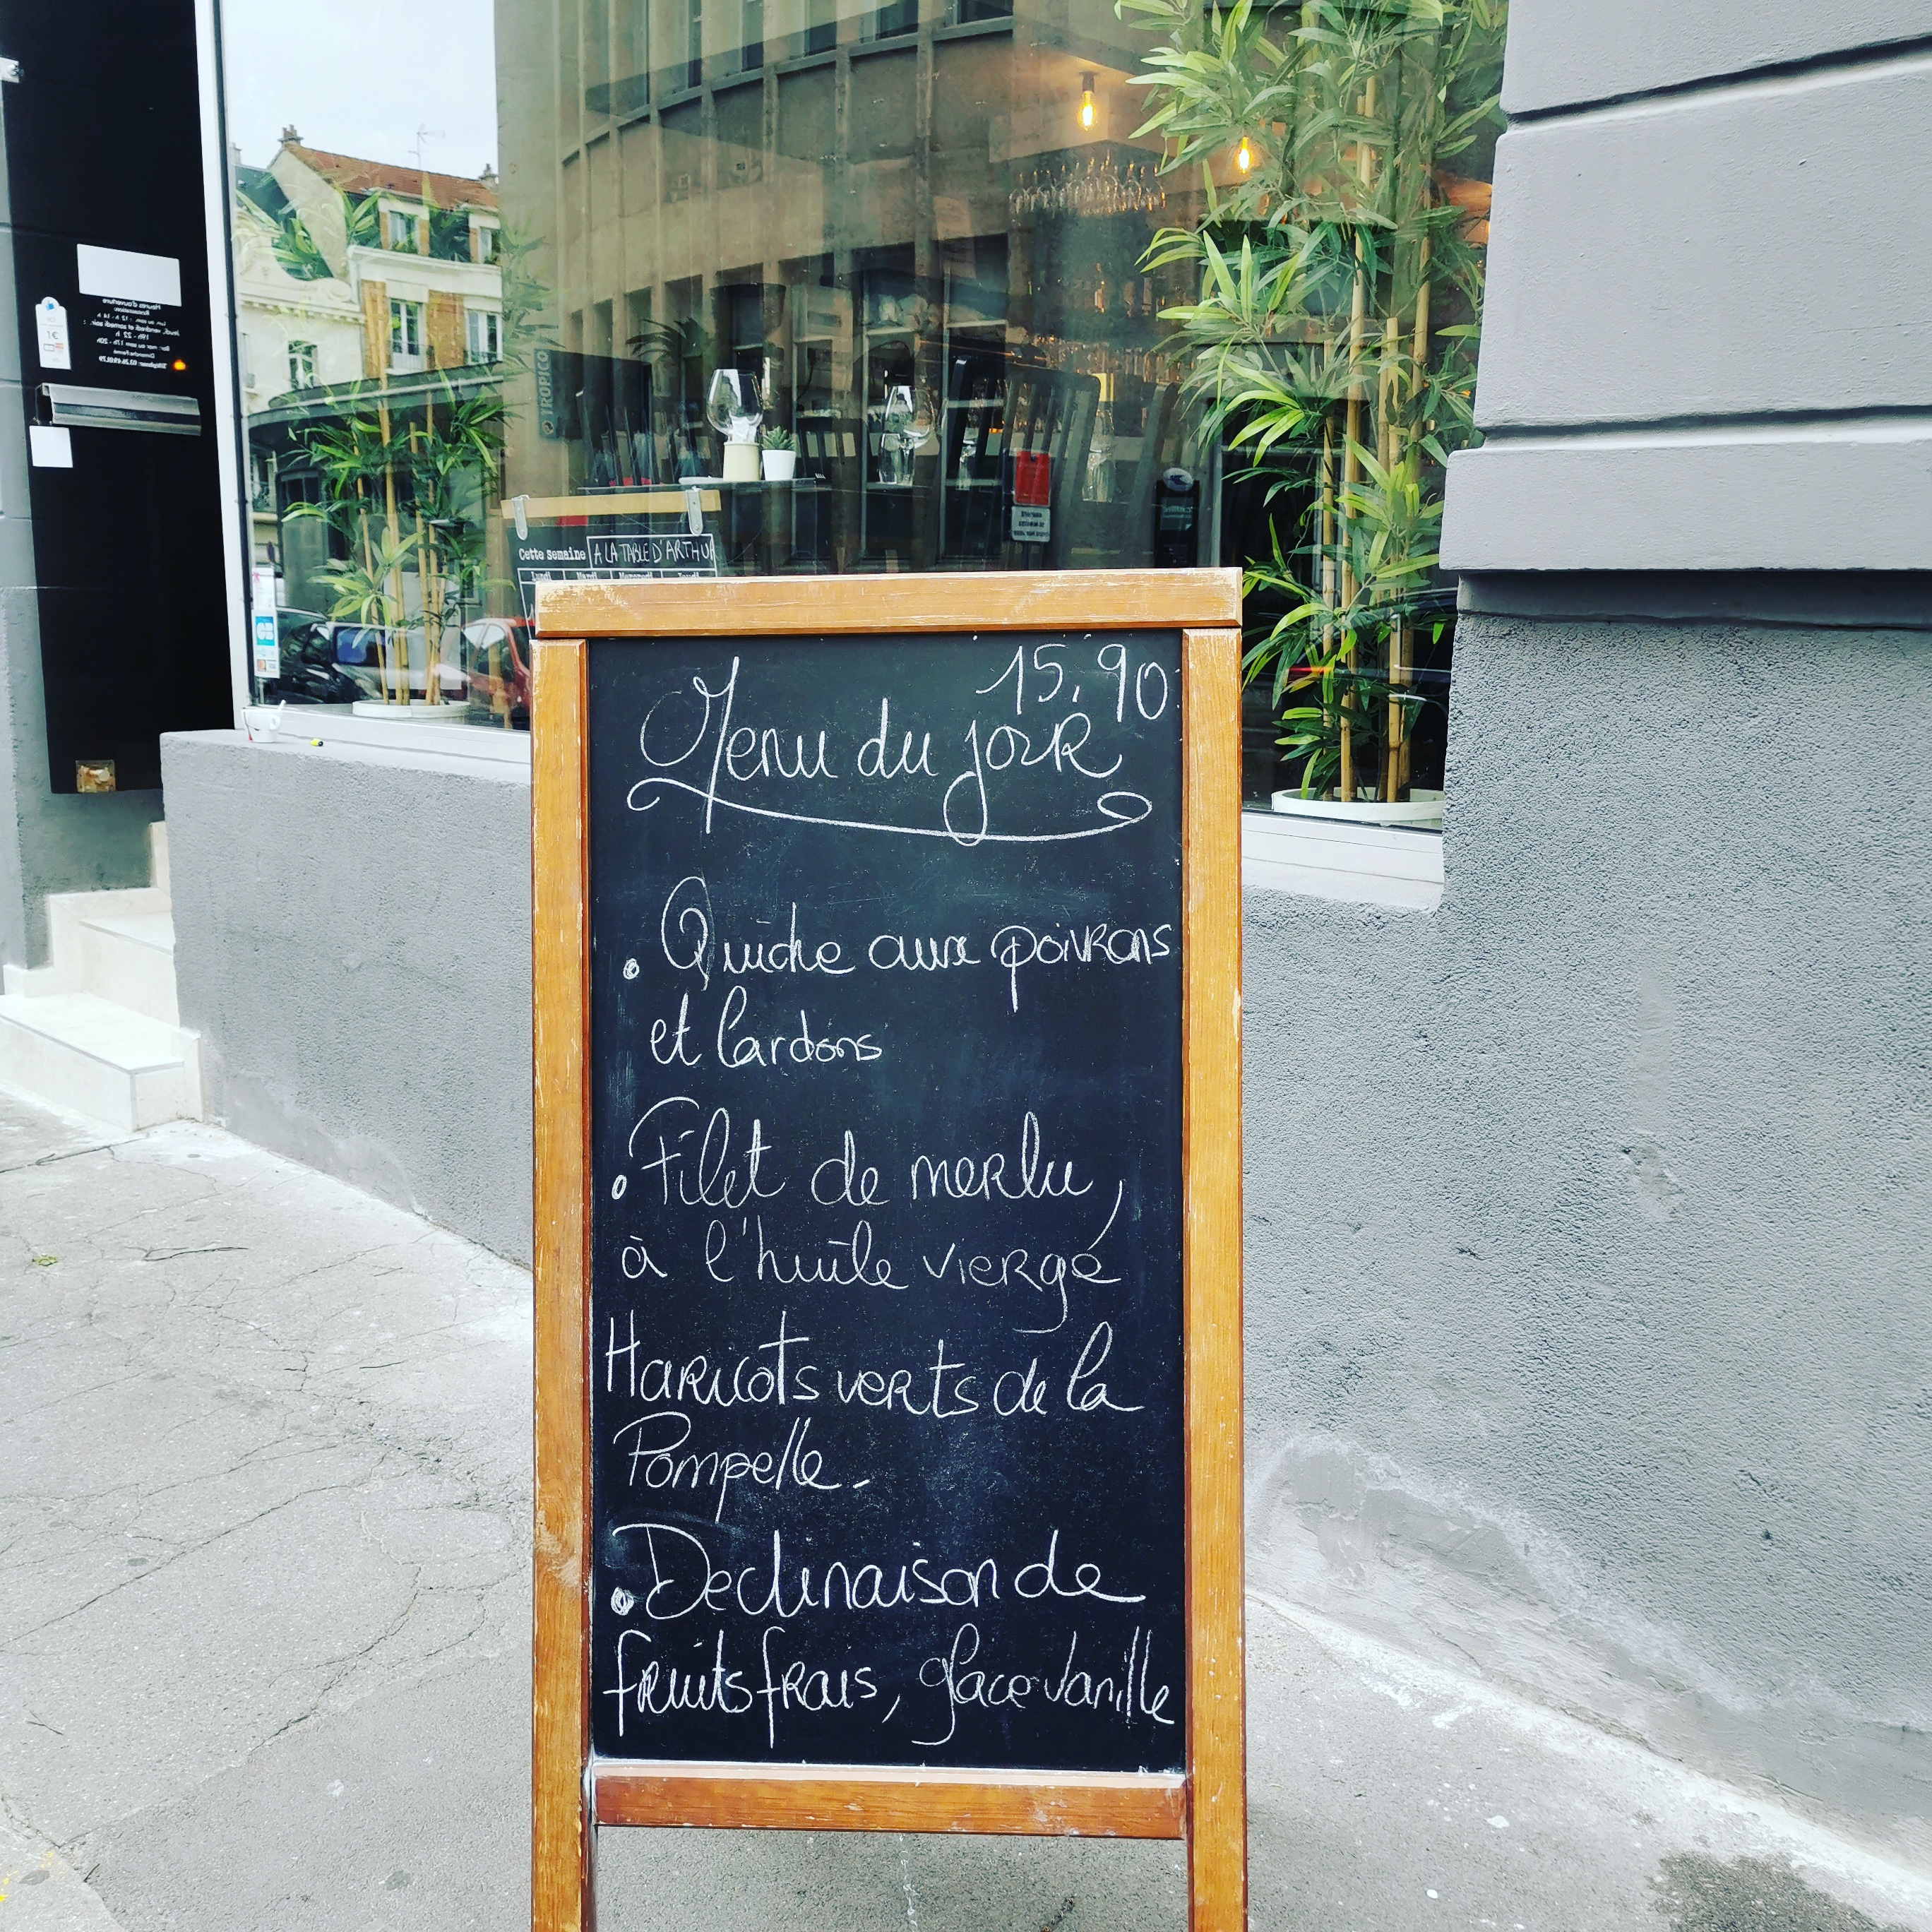 Cette semaine A LA TABLE D'ARTHUR
Lundi Mardi Mercredi Jeudi
TROPICO
1€
CB
15.90
Menu du jour
• Quiche aux poivrons
et lardons
• Filet de merlu,
à l'huile vierge
Haricots verts de la
Pompelle.
• Declinaison de
fruits frais, glace vanille